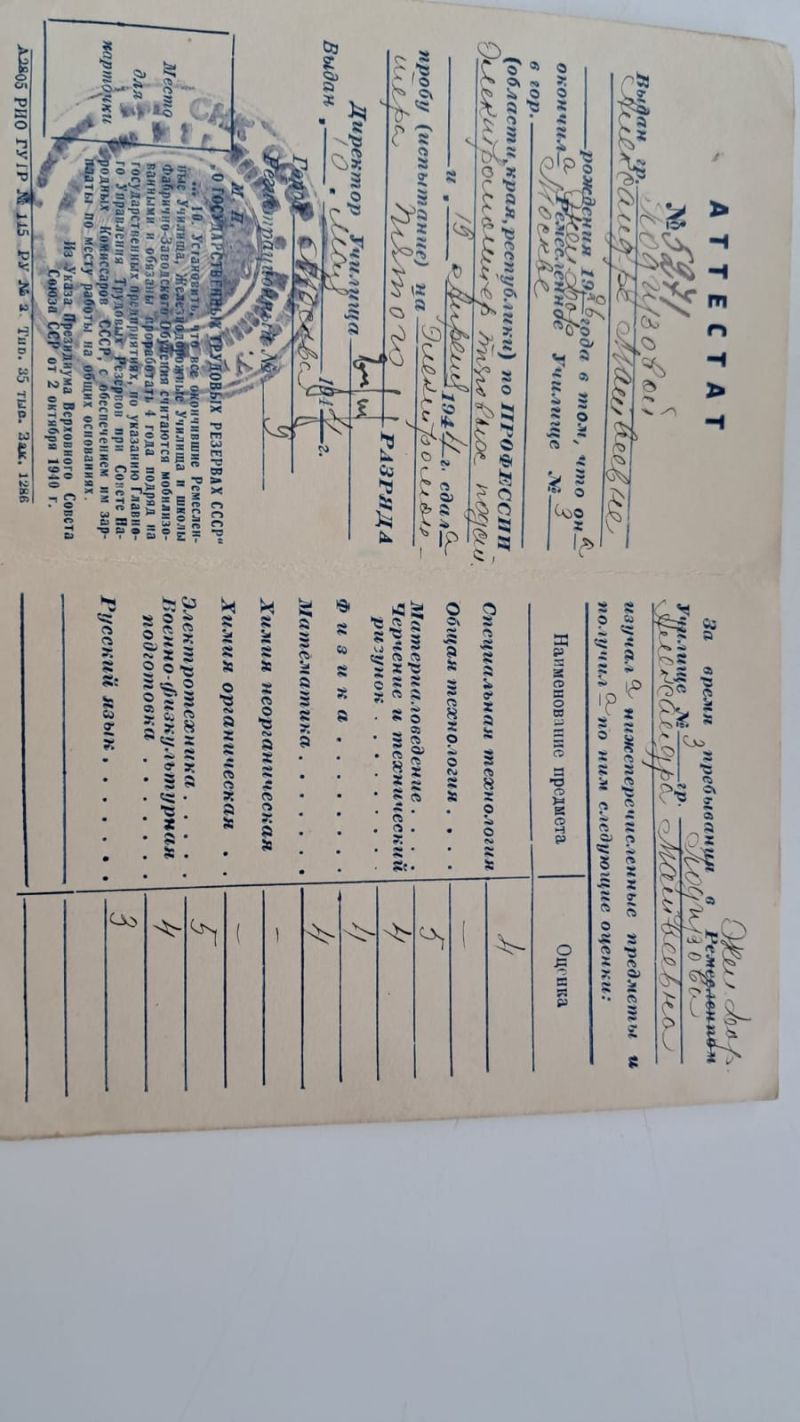 АТТЕСТАТ
№ 59241
Выдан гр.
Александре Матвеевне
рождения 1926 года в том, что он а
окончил а Жел дор
Ремесленное Училище № 3
в гор. Москве
(области, края, республики) по ПРОФЕССИИ
и „19" Апреля 1944 г. сдал а
пробу (испытание) на Электромон-
тера Пятого РАЗРЯДА
Директор Училища
Выдан „10" Мая 1944 г.
Город Москва
Регистрационный №
М. П.
Место
для
карточки
„О ГОСУДАРСТВЕННЫХ ТРУДОВЫХ РЕЗЕРВАХ СССР"
... 10. Установить, что все окончившие Ремеслен-
ные Училища, Железнодорожные Училища и школы
Фабрично-Заводского Обучения считаются мобилизо-
ванными и обязаны проработать 4 года подряд на
государственных предприятиях, по указанию Главно-
го Управления Трудовых Резервов при Совете На-
родных Комиссаров СССР, с обеспечением им зар-
платы по месту работы на общих основаниях.
Из Указа Президиума Верховного Совета
Союза ССР от 2 октября 1940 г.
А2805 РИО ГУТР № 115 РУ № 2. Тип. 35 тыс. Зак. 1286
Жел дор.
За время пребывания в Ремесленном
Училище № 3 гр.
Александра Матвеевна
изучал а нижеперечисленные предметы и
получил а по ним следующие оценки:
Наименование предмета Оценка
Специальная технология 4
Общая технология . . . . —
Материаловедение . . . . 5
Черчение и технический
рисунок . . . . . . . 4
Физика . . . . . . . 4
Математика . . . . . . . 4
Химия неорганическая -
Химия органическая . . —
Электротехника . . . . . 5
Военно-физкультурная
подготовка . . . . . . 4
Русский язык . . . . . . 3